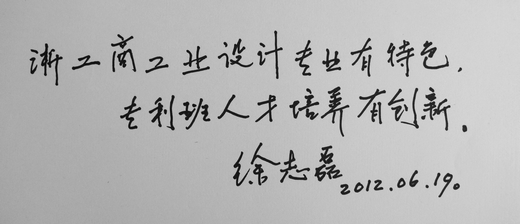 浙工商工业设计专业有特色,
专利班人才培养有创新。
徐志磊
2012.06.19。